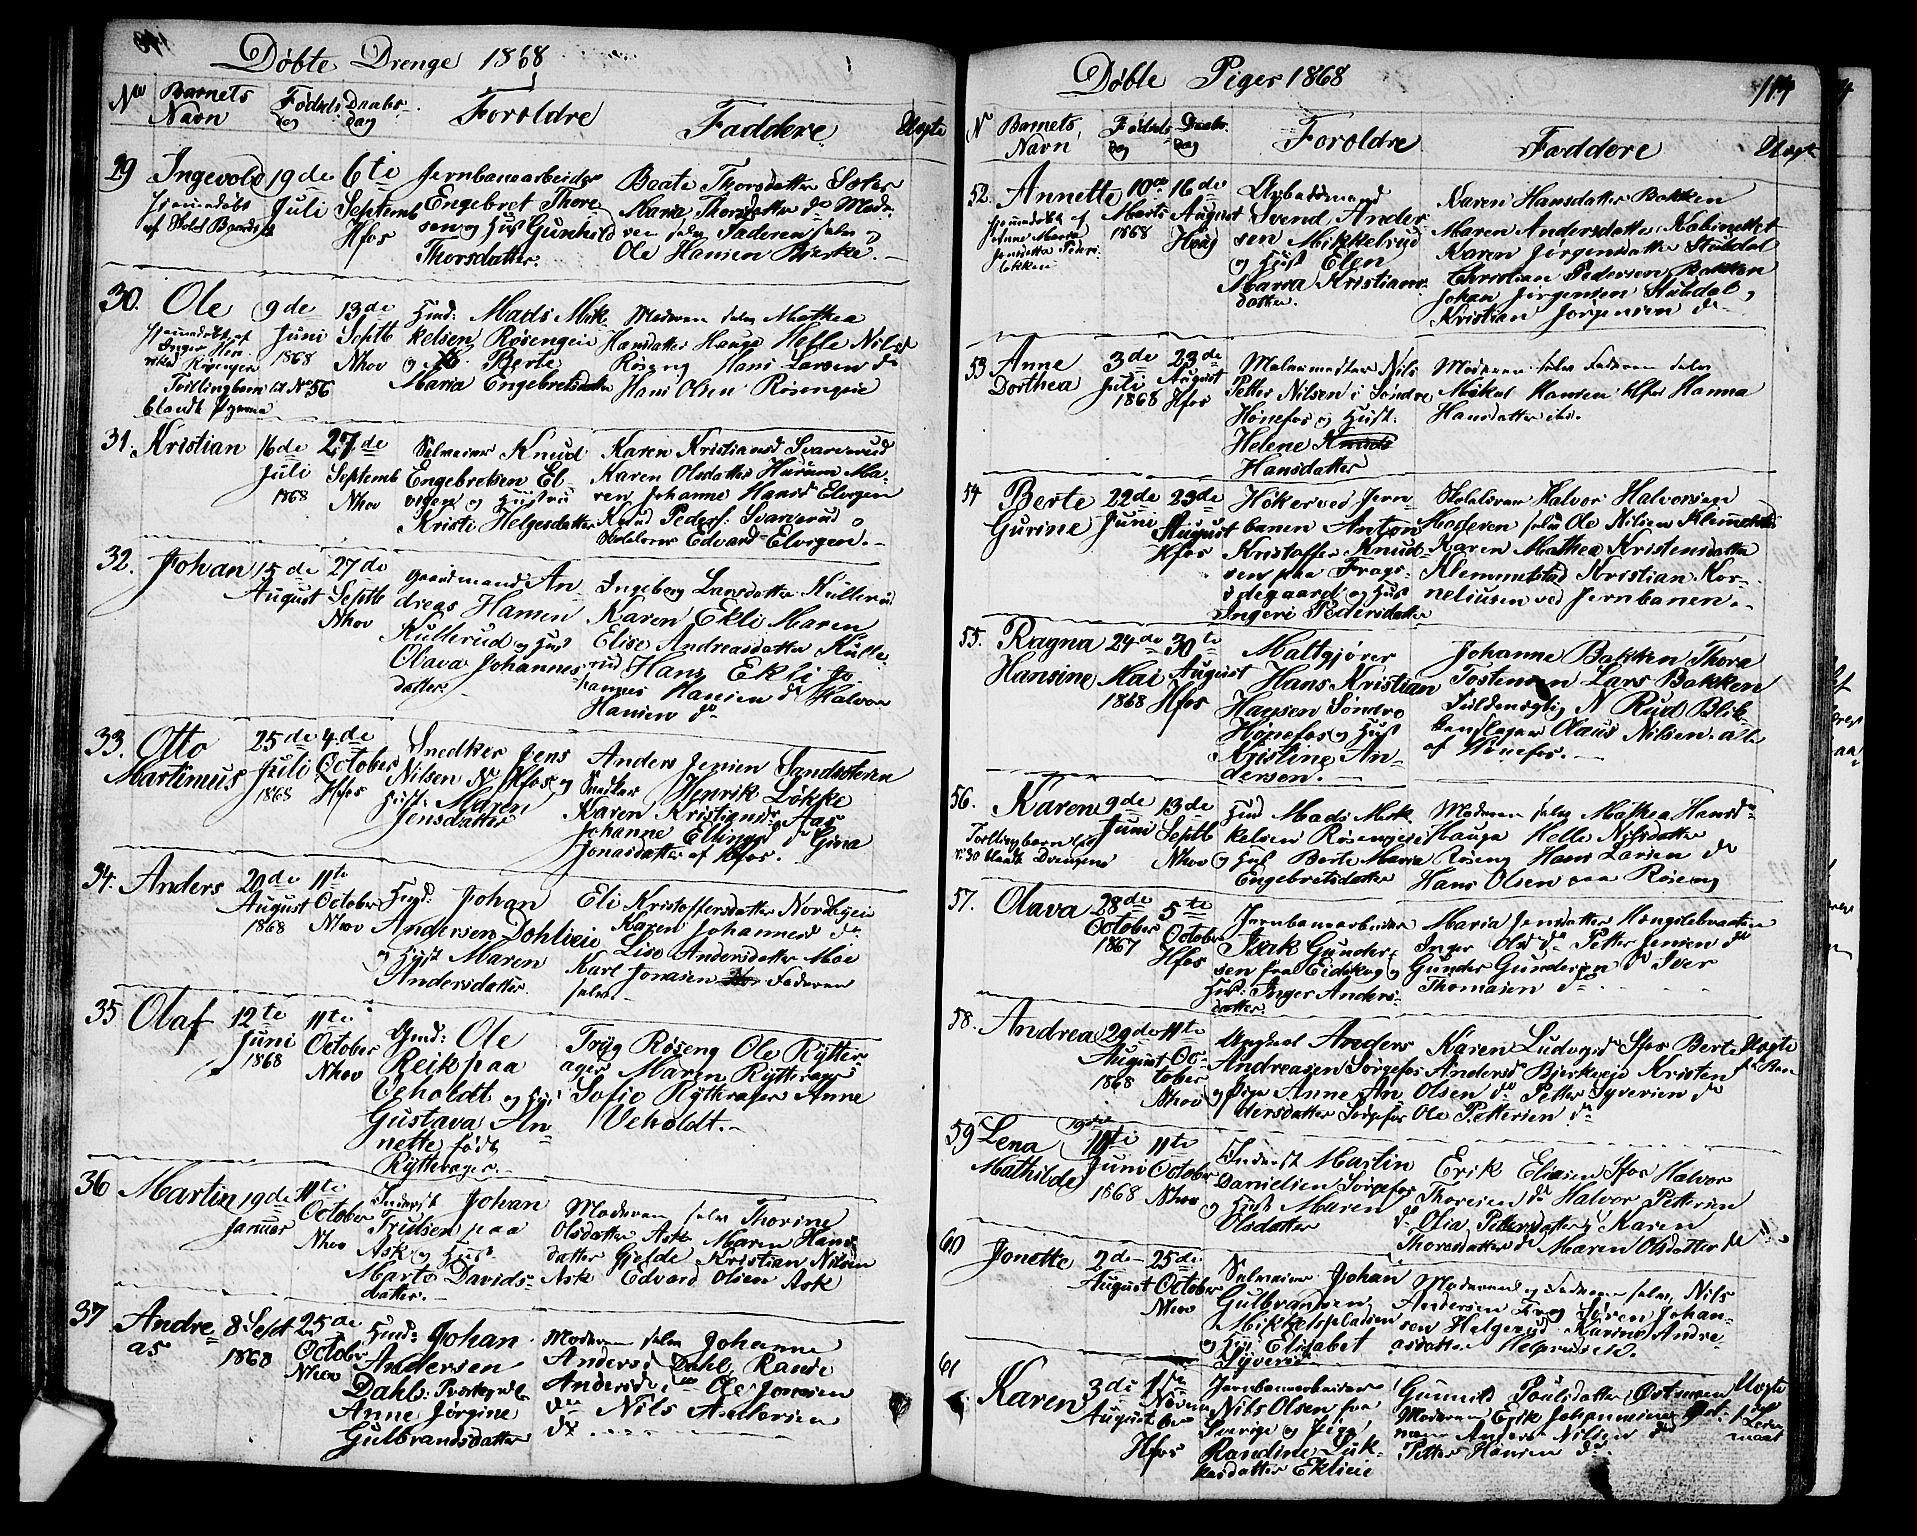 Døbte Drenge 1868
No Barnets Navn Fødsels dag Daabs dag Forældre Faddere Uægte
29 Ingevold 19de Juli 6ti Septemb Hfos
Hjemmedøbt af
Jernbanearbeider
Engebret Thore
sen og Hust Gunhild
Thorsdatter.
Beate Thorsdatter Søster
Maria Thorsdatter do Mode
ren selv Faderen selv og
Ole Hansen Bjerke.
30. Ole 9de Juni 1868 13de Septb Nhov
Hjemmedøbt af
Inger
Tvillingbarn ct No 56
blandt Pigerne
Hmd: Mads Mik
kelsen Røsengen
og Berte
Maria Engebretsdatter
Moderen selv Mathea
Hansdatter Hauga Helle Nilsd
Røseng Hans Larsen do
Hans Olsen Røsengen
31. Kristian 16de Juli 1868 27de Septemb Nhov
Selveier Knud
Engebretsen El
vigen og Hustru
Kristi Helgesdatter
Karen Kristiansd Svarverud
Karen Olsdatter Harum Ma
ren Johanne Hansd Elvigen
Knud Peders: Svarverud og
Edvard Elvigen.
32. Johan 15de August 27de Septb Nhov
Gaardmand An
dreas Hansen
Kullerud og Hust
Olava Johannes
datter
Ingeborg Larsdatter Kullerud
Karen Ekli Maren
Elise Andreasdatter Kulle
rud Hans Ekli Jo
hannes Hansen do Halvor
Hansen do
33. Otto Martinus 25de Juli 1868 4de October Hfos
Snedker Jens
Nilsen N Hfos og
Hust. Maren
Jensdatter
Anders Jensen
Snedker Henrik Løkke
Karen Kristiansd Aas
Johanne do Gina
Jonasdatter af Hfos.
34. Anders 20de August 1868 11te October Nhov
Hmd. Johan
Andersen Dohlieie
og Hust Maren
Andersdatter
Eli Kristoffersdatter
Karen Johannesd do
Lise Andersdatter Moe
Karl Jonasen Faderen
selv
35 Olaf 12te Juni 1868 11te October Nhov
Gmd: Ole
Reik paa
Veholdt og Hust
Gustava An
nette født
Rytterager.
Tryg Røseng Ole Rytter
ager Maren Rytterager
Sofie Rytterager Anne
Veholdt.
36 Martin 19de Januar 11te October Nhov
Inderst Johan
Trulsen paa
Ask og Hust
Marte Davids
datter.
Moderen selv Thorine
Olsdatter Ask Maren Hans
datter Gjelde Kristian Nilsen
Ask Edvard Olsen Ask
37 Andreas 8 Sept 1868 25de October Nhov
Hmd: Johan
Andersen
Dahl
Anne Jørgine
Gulbrandsdatter
Moderen selv Johanne
Andersd Dahl Randi
Andersd do Ole Jonsen
do Nils Andersen
do
Døbte Piger 1868 114
No Barnets Navn Fødsels Dag Daabs Dag Forældre Faddere Uægte
52. Annette 10de Marts 1868 16de August Haug
Hjemmedøbt af
Anne Marie
Arbeidsmand
Svend Ander
sen Mikkelrud
og Hust Elen
Maria Kristians
datter.
Karen Hansdatter Bakken
Maren Andersdatter Kabinettet
Karen Jørgensdatter Stubdal
Christian Pedersen Bakken
Johan Jørgensen Stubdal og
Kristian Jørgensen do
53 Anne Dorthea 3de Juli 1868 23de August Hfos
Malermester Nils
Petter Nilsen i Søndre
Hønefos og Hust:
Helene
Hansdatter
Moderen selv Faderen selv
Mikal Hansen Hfos Hanna
Hansdatter ibd.
54 Berte Gurine 22de Juni 23de August Hfos
Høker ved Jern
banen Anton
Kristoffer Knud
sen paa Frogs
ødegaard og Hust
Ingeri Pedersdatter
Halvor Halvorsen
Moderen selv Ole Nilsen
Karen Mathea Kristensdatter
Klemmetstad Kristian Kor
neliusen ved Jernbanen.
55. Ragna Hansine 24de Mai 1868 30te August Hfos
Maltgjører
Hans Kristian
Hansen Søndre
Hønefos og Hust
Kristine An
dersen.
Johanne Bakken Thora
Tostensen Lars Bakken
Fuldmægtig N Rud Blik
kenslager Olaus Nilsen alle
af Hønefos.
56. Karen 9de Juni 13de Septb Nhov
Tvillingbarn
No 30 blandt Drengene
Hmd Mads Mik
kelsen Røsengen
og Hust Berte Maria
Engebretsdatter
Moderen selv Mathea Hansd
Hauga Helle Nilsdatter
Røseng Hans Larsen do
Hans Olsen paa Røseng
57. Olava 28de October 1867 5te October Hfos
Jernbanearbeider
Isak Gunder
sen fra Eidskog og
Hust: Inger Anders
datter
Maria Jensdatter
Inger Olsd do Petter Jensen do
Gunder Gundersen do Iver
Thomasen do
58. Andrea 29de August 1868 11te October Nhov
Ungkarl Anders
Andreasen Sørgefos
og Pige Anne An
dersdatter Sørgefos
Karen Ludvigsd Sfos Berte
Andersd Bjerkveje Kristen
Olsen do Petter Syversen do
Ole Pettersen do
Uægte
59 Lena Mathilde Juni 1868 11te October Nhov
Inderst Martin
Danielsen Sørgefos
og Hust Maren
Olsdatter
Erik Eliasen Sfos Halvor
Thoresen do Halvor Pettersen
do Olia Pettersdatter do Karen
Thoresdatter do Maren Olsdatter do
60 Jonette 2de August 25de October Nhov
Selveier Johan
Gulbrandsen
Mikkelspladsen
og Hust Elisabet
Syversd
Moderen og Faderen selv, Nils
Andersen Søren Johan
sen Helgerud Karine Andre
asdatter Helgerud.
61 Karen 3de August 1ste Novem ber Hfos
Jernbanearbeider
Nils Olsen fra
Sverige og Pige
Randine Luk
kasdatter Eklieie
Gunnild Poulsdatter Østmoen
Moderen Erik Johannesen
Anders Nilsen do
Petter Hansen do
Uægte